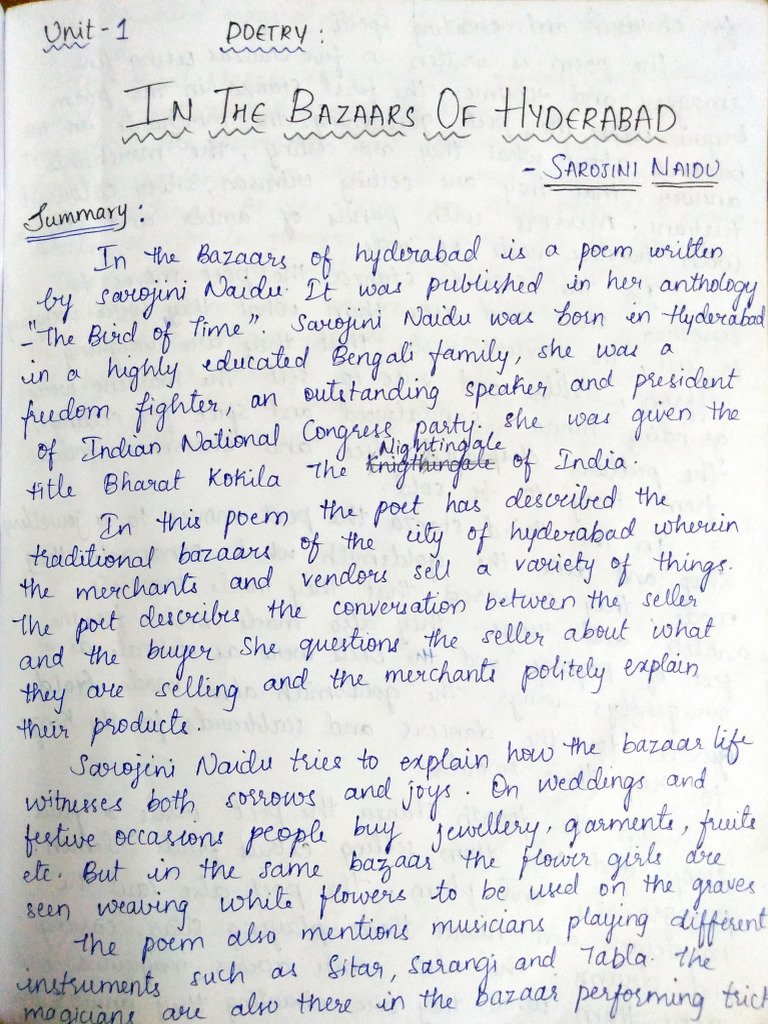 Unit - 1 POETRY :
IN THE BAZAARS OF HYDERABAD
- SAROJINI NAIDU
Summary :
In the Bazaars of hyderabad is a poem written
by Sarojini Naidu. It was published in her anthology
- "The Bird of Time". Sarojini Naidu was born in Hyderabad
in a highly educated Bengali family, she was a
freedom fighter, an outstanding speaker and president
of Indian National Congress party. She was given the
title Bharat Kokila The Nightingale of India.
In this poem the poet has described the
traditional bazaars of the city of hyderabad wherein
the merchants and vendors sell a variety of things.
The poet describes the conversation between the seller
and the buyer. She questions the seller about what
they are selling and the merchants politely explain
their products.
Sarojini Naidu tries to explain how the bazaar life
witnesses both sorrows and joys. On weddings and
festive occasions people buy jewellery, garments, fruits
etc. But in the same bazaar the flower girls are
seen weaving white flowers to be used on the graves
The poem also mentions musicians playing different
instruments such as Sitar, Sarangi and Tabla. The
magicians are also there in the bazaar performing trick